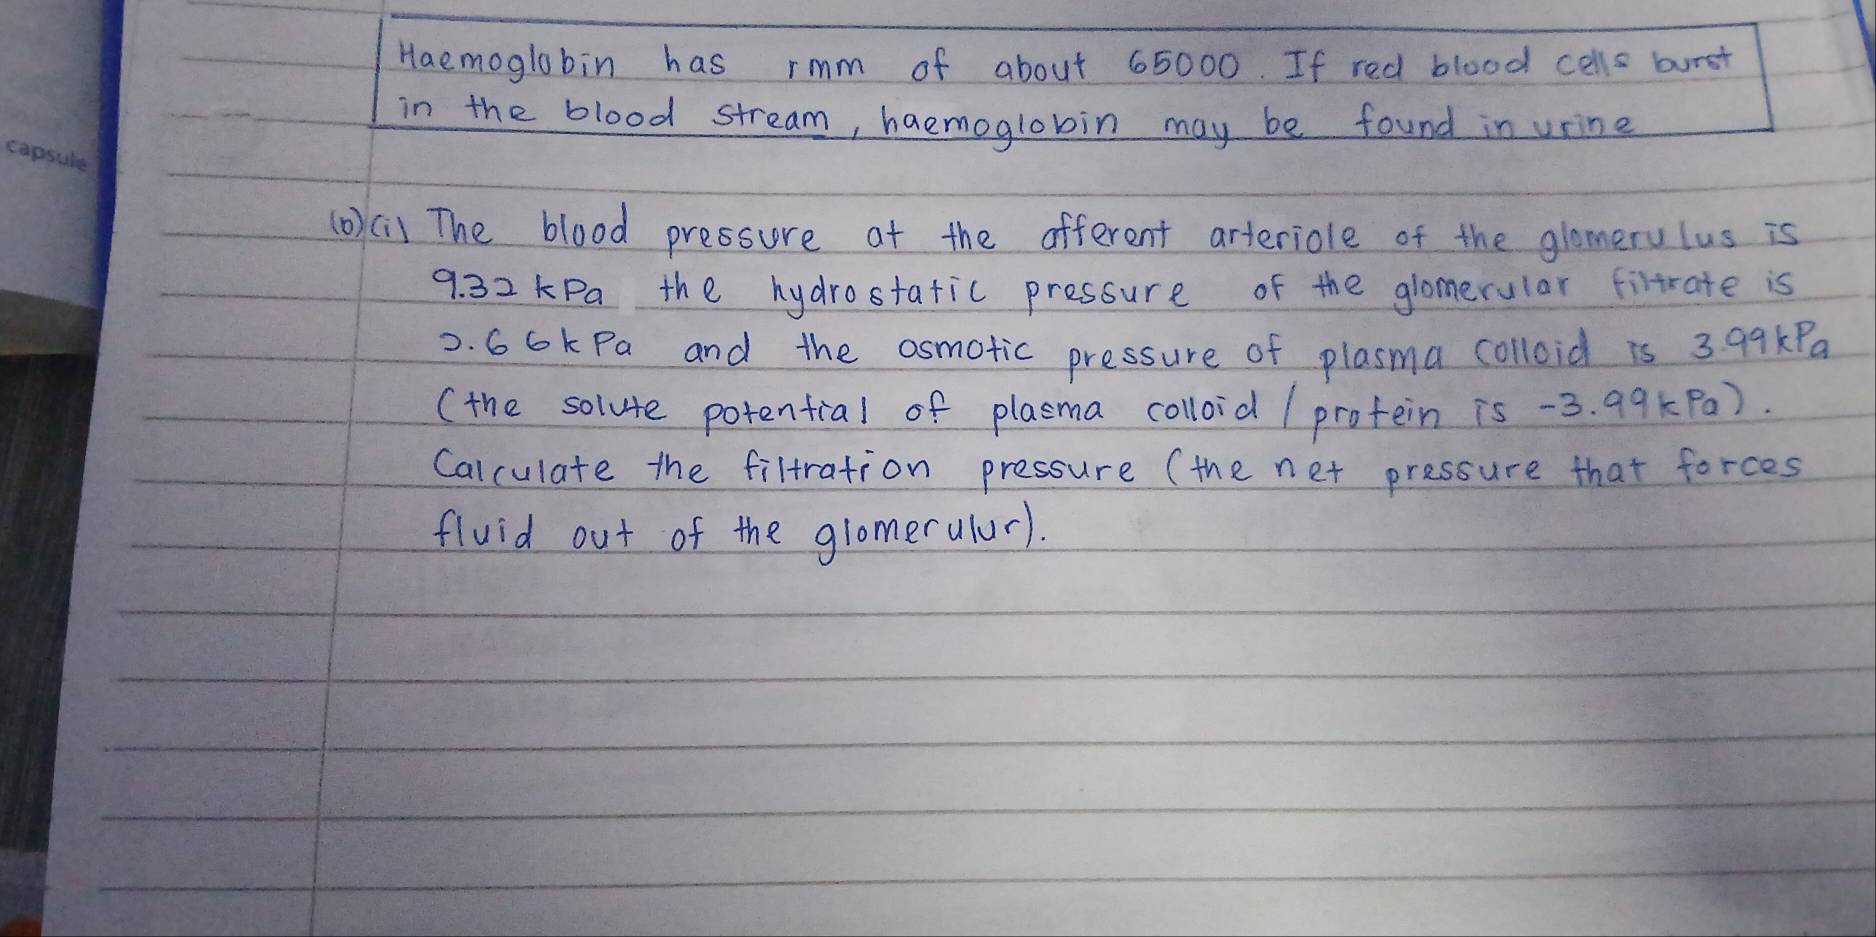 capsule
Haemoglobin has rmm of about 65000. If red blood cells burst
in the blood stream, haemoglobin may be found in urine
(b)(i) The blood pressure at the afferent arteriole of the glomerulus is
9.32 kPa the hydrostatic pressure of the glomerular filtrate is
2.66kPa and the osmotic pressure of plasma colloid is 3.99kPa
(the solute potential of plasma colloid / protein is -3.99kPa).
Calculate the filtration pressure (the net pressure that forces
fluid out of the glomerulur).